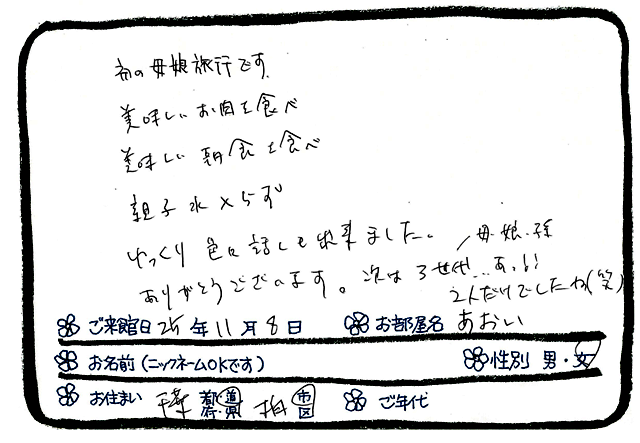 初の母娘旅行です
美味しいお肉を食べ
美味しい朝食を食べ
親子水入らず
ゆっくり色々話しも出来ました。
ありがとうございます。次は3世代…あっ!!
母・娘・孫
2人だけでしたね(笑)
ご来館日 25年11月8日 お部屋名 あおい
お名前(ニックネームOKです) 性別 男・女
お住まい 千葉 都道府県 柏 市区 ご年代